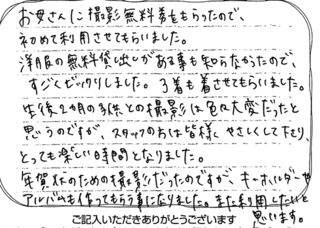 お母さんに撮影無料券をもらったので、
初めて利用させてもらいました。
洋服の無料貸し出しがある事も知らなかったので、
すごくビックリしました。3着も着させてもらいました。
生後2ヵ月の子供との撮影は色々大変だったと
思うのですが、スタッフの方は皆様やさしくして下さり、
とっても楽しい時間となりました。
年賀状のための撮影だったのですが、キーホルダーや
アルバムも作ってもらう事になりました。また利用したいと
思います。
ご記入いただきありがとうございます